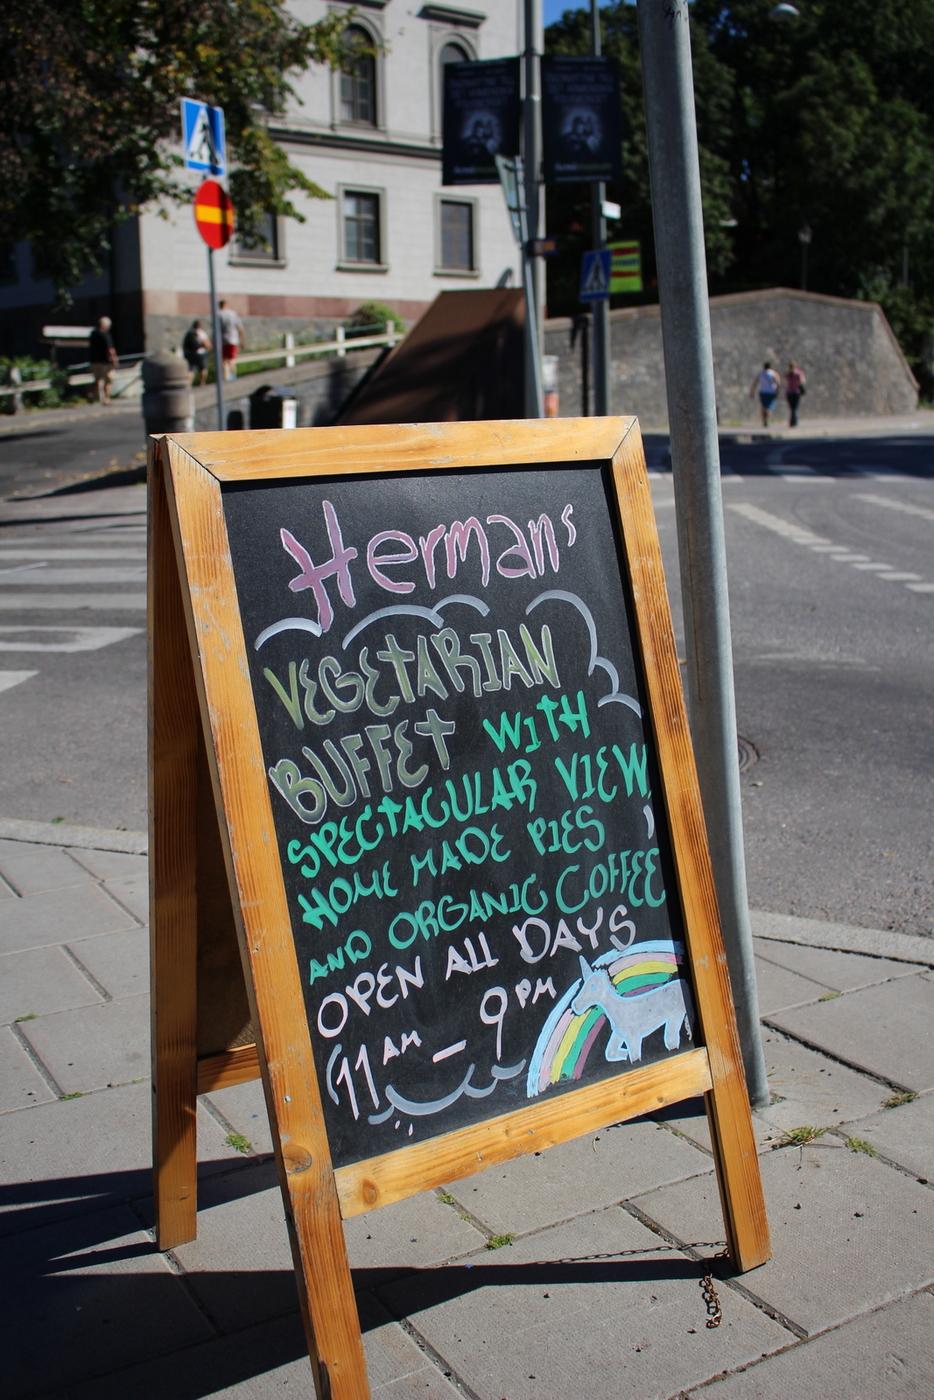 Herman's
VEGETARIAN
BUFFET WITH
SPECTACULAR VIEW,
HOME MADE PIES
AND ORGANIC COFFEE
OPEN ALL DAYS
(11 AM – 9 PM